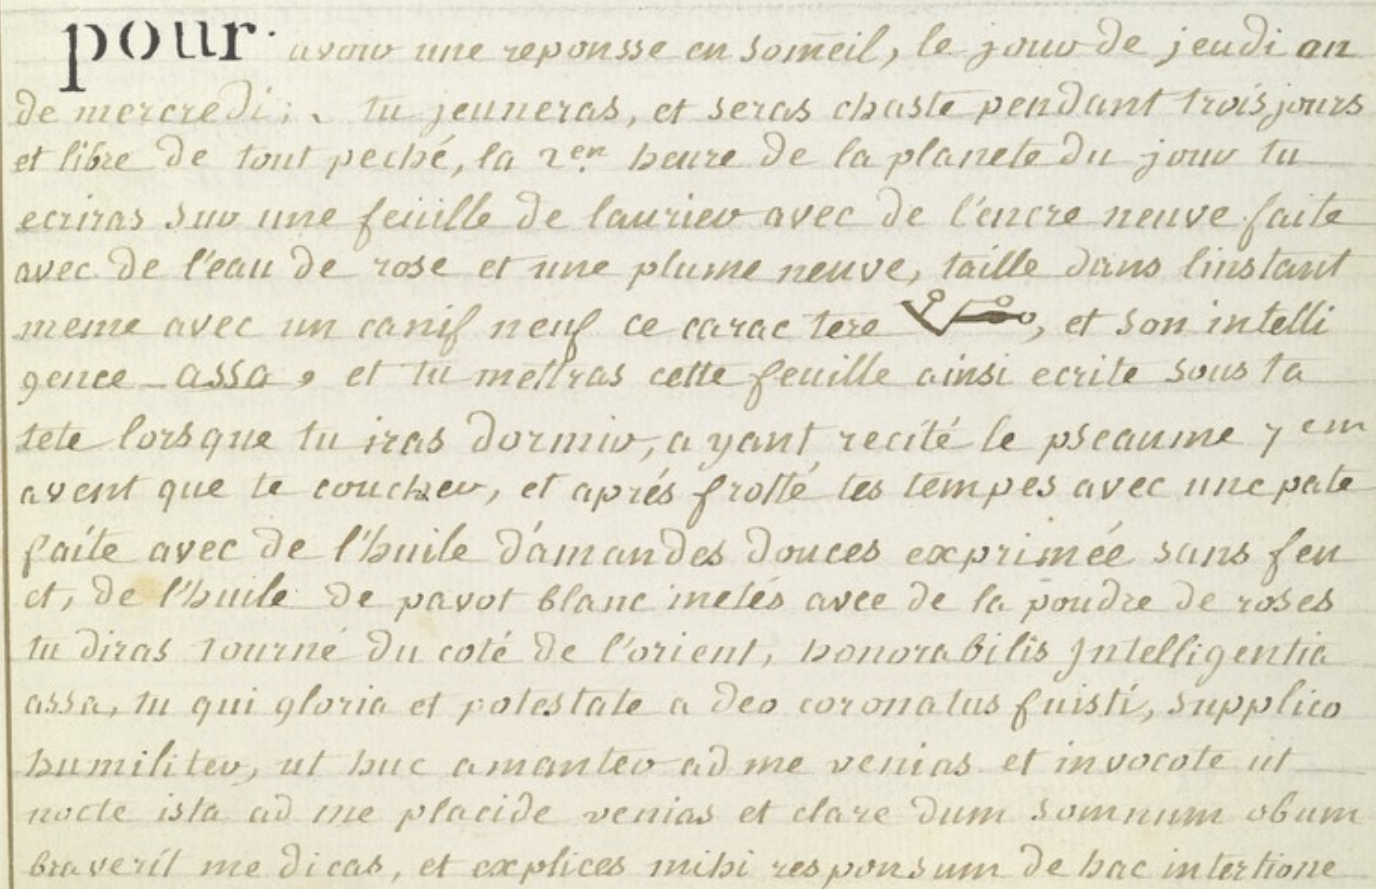 pour avoir une reponsse en someil, le jour de jeudi ou
de mercredi; tu jeuneras, et seras chaste pendant trois jours
et libre de tout peché, la 2en heure de la planete du jour tu
ecriras sur une feüille de laurier avec de l'encre neuve faite
avec de l'eau de rose et une plume neuve, taille dans linstant
meme avec un canif neuf ce carac tere , et son intelli
gence assa, et tu mettras cette feuille ainsi ecrite sous ta
tete lorsque tu iras dormir, a yant recité le pseaume 7em
avent que te coucher, et aprés frotté tes tempes avec une pate
faite avec de l'huile d'amandes douces exprimée sans feu
et, de l'huile de pavot blanc melés avec de la poudre de roses
tu diras tourné du coté de l'orient, honorabilis Jntelligentia
assa, tu qui gloria et potestate a deo coronatus fuisti, supplico
humiliter, ut huc amanter ad me venias et invocote ut
nocte ista ad me placide venias et clare dum somnum obum
braverit me dicas, et explices mihi responsum de hac intertione